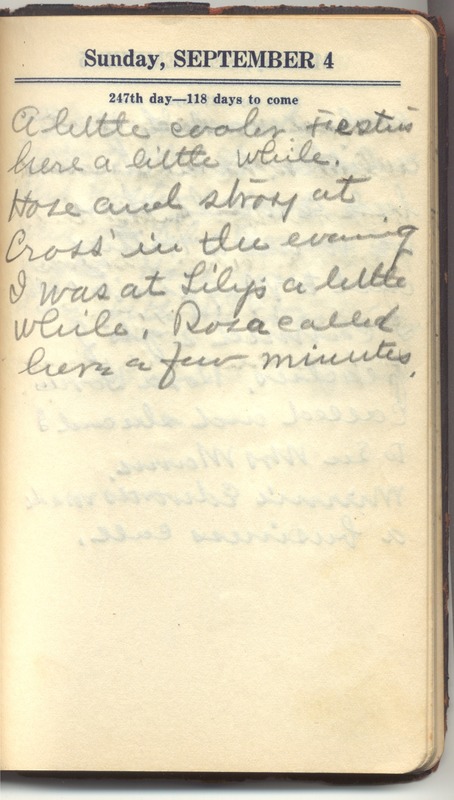 Sunday, SEPTEMBER 4
247th day—118 days to come
A little cooler Festus
here a little while.
Hose and story at
Cross' in the evening
I was at Lily's a little
while. Rosa called
here a few minutes.